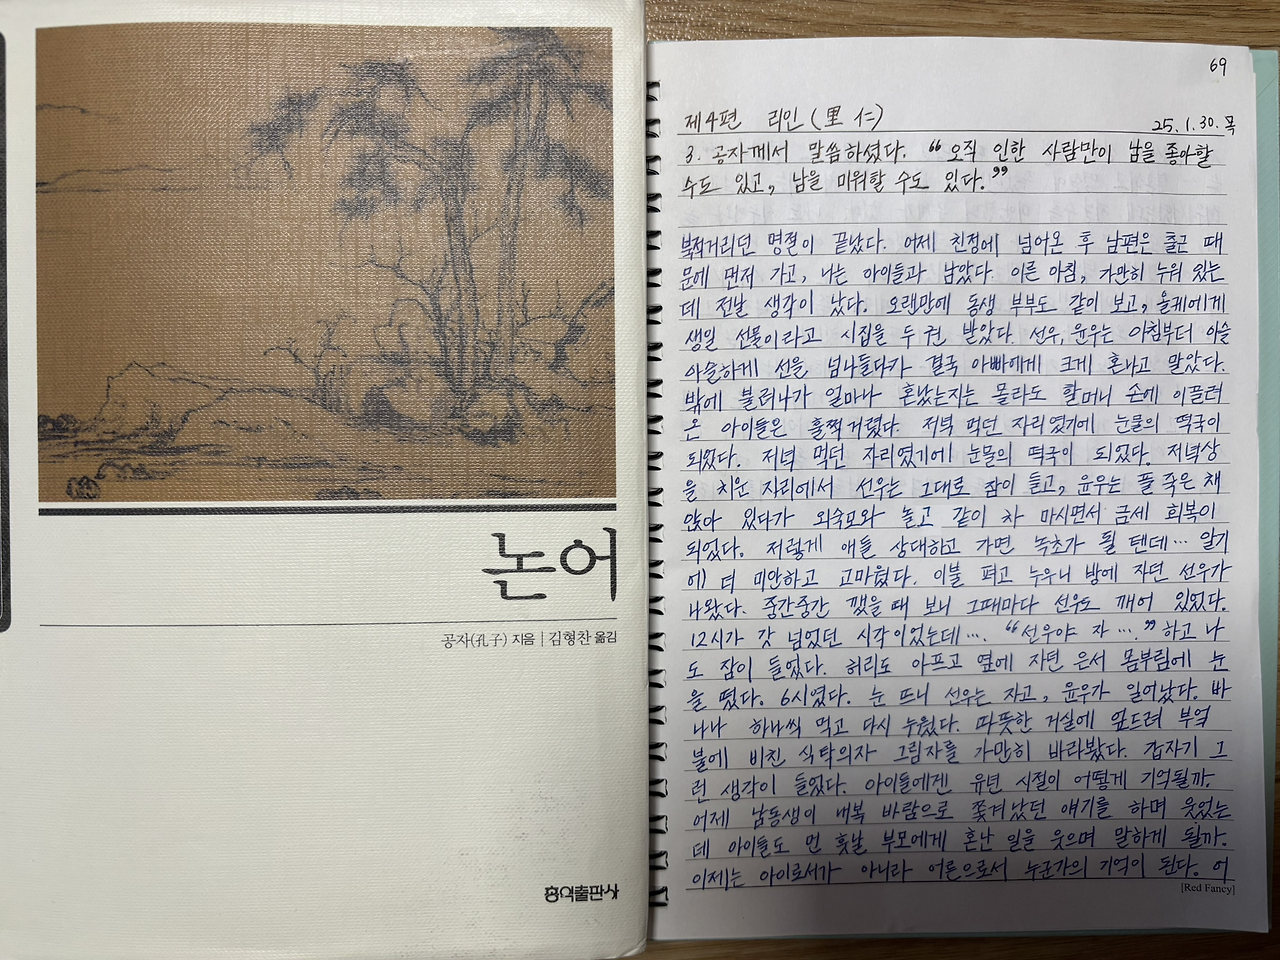 논어
공자(孔子) 지음 | 김형찬 옮김
홍익출판사
69
제4편 리인(里仁)
25. 1. 30. 목
3. 공자께서 말씀하셨다. “오직 인한 사람만이 남을 좋아할
수도 있고, 남을 미워할 수도 있다.”
북적거리던 명절이 끝났다. 어제 친정에 넘어온 후 남편은 출근 때
문에 먼저 가고, 나는 아이들과 남았다. 이른 아침, 가만히 누워 있는
데 전날 생각이 났다. 오랜만에 동생 부부도 같이 보고, 올케에게
생일 선물이라고 시집을 두 권 받았다. 선우, 윤우는 아침부터 아슬
아슬하게 선을 넘나들다가 결국 아빠에게 크게 혼나고 말았다.
밖에 불려나가 얼마나 혼났는지는 몰라도 할머니 손에 이끌려
온 아이들은 훌쩍거렸다. 저녁 먹던 자리였기에 눈물의 떡국이
되었다. 저녁 먹던 자리였기에 눈물의 떡국이 되었다. 저녁상
을 치운 자리에서 선우는 그대로 잠이 들고, 윤우는 풀 죽은 채
앉아 있다가 외숙모와 놀고 같이 차 마시면서 금세 회복이
되었다. 저렇게 애들 상대하고 가면 녹초가 될 텐데… 알기
에 더 미안하고 고마웠다. 이불 펴고 누우니 방에 자던 선우가
나왔다. 중간중간 깼을 때 보니 그때마다 선우도 깨어 있었다.
12시가 갓 넘었던 시각이었는데…. “선우야 자….” 하고 나
도 잠이 들었다. 허리도 아프고 옆에 자던 은서 몸부림에 눈
을 떴다. 6시였다. 눈 뜨니 선우는 자고, 윤우가 일어났다. 바
나나 하나씩 먹고 다시 누웠다. 따뜻한 거실에 엎드려 부엌
불에 비친 식탁의자 그림자를 가만히 바라봤다. 갑자기 그
런 생각이 들었다. 아이들에겐 유년 시절이 어떻게 기억될까.
어제 남동생이 내복 바람으로 쫓겨났던 얘기를 하며 웃었는
데 아이들도 먼 훗날 부모에게 혼난 일을 웃으며 말하게 될까.
이제는 아이로서가 아니라 어른으로서 누군가의 기억이 된다. 어
[Red Fancy]